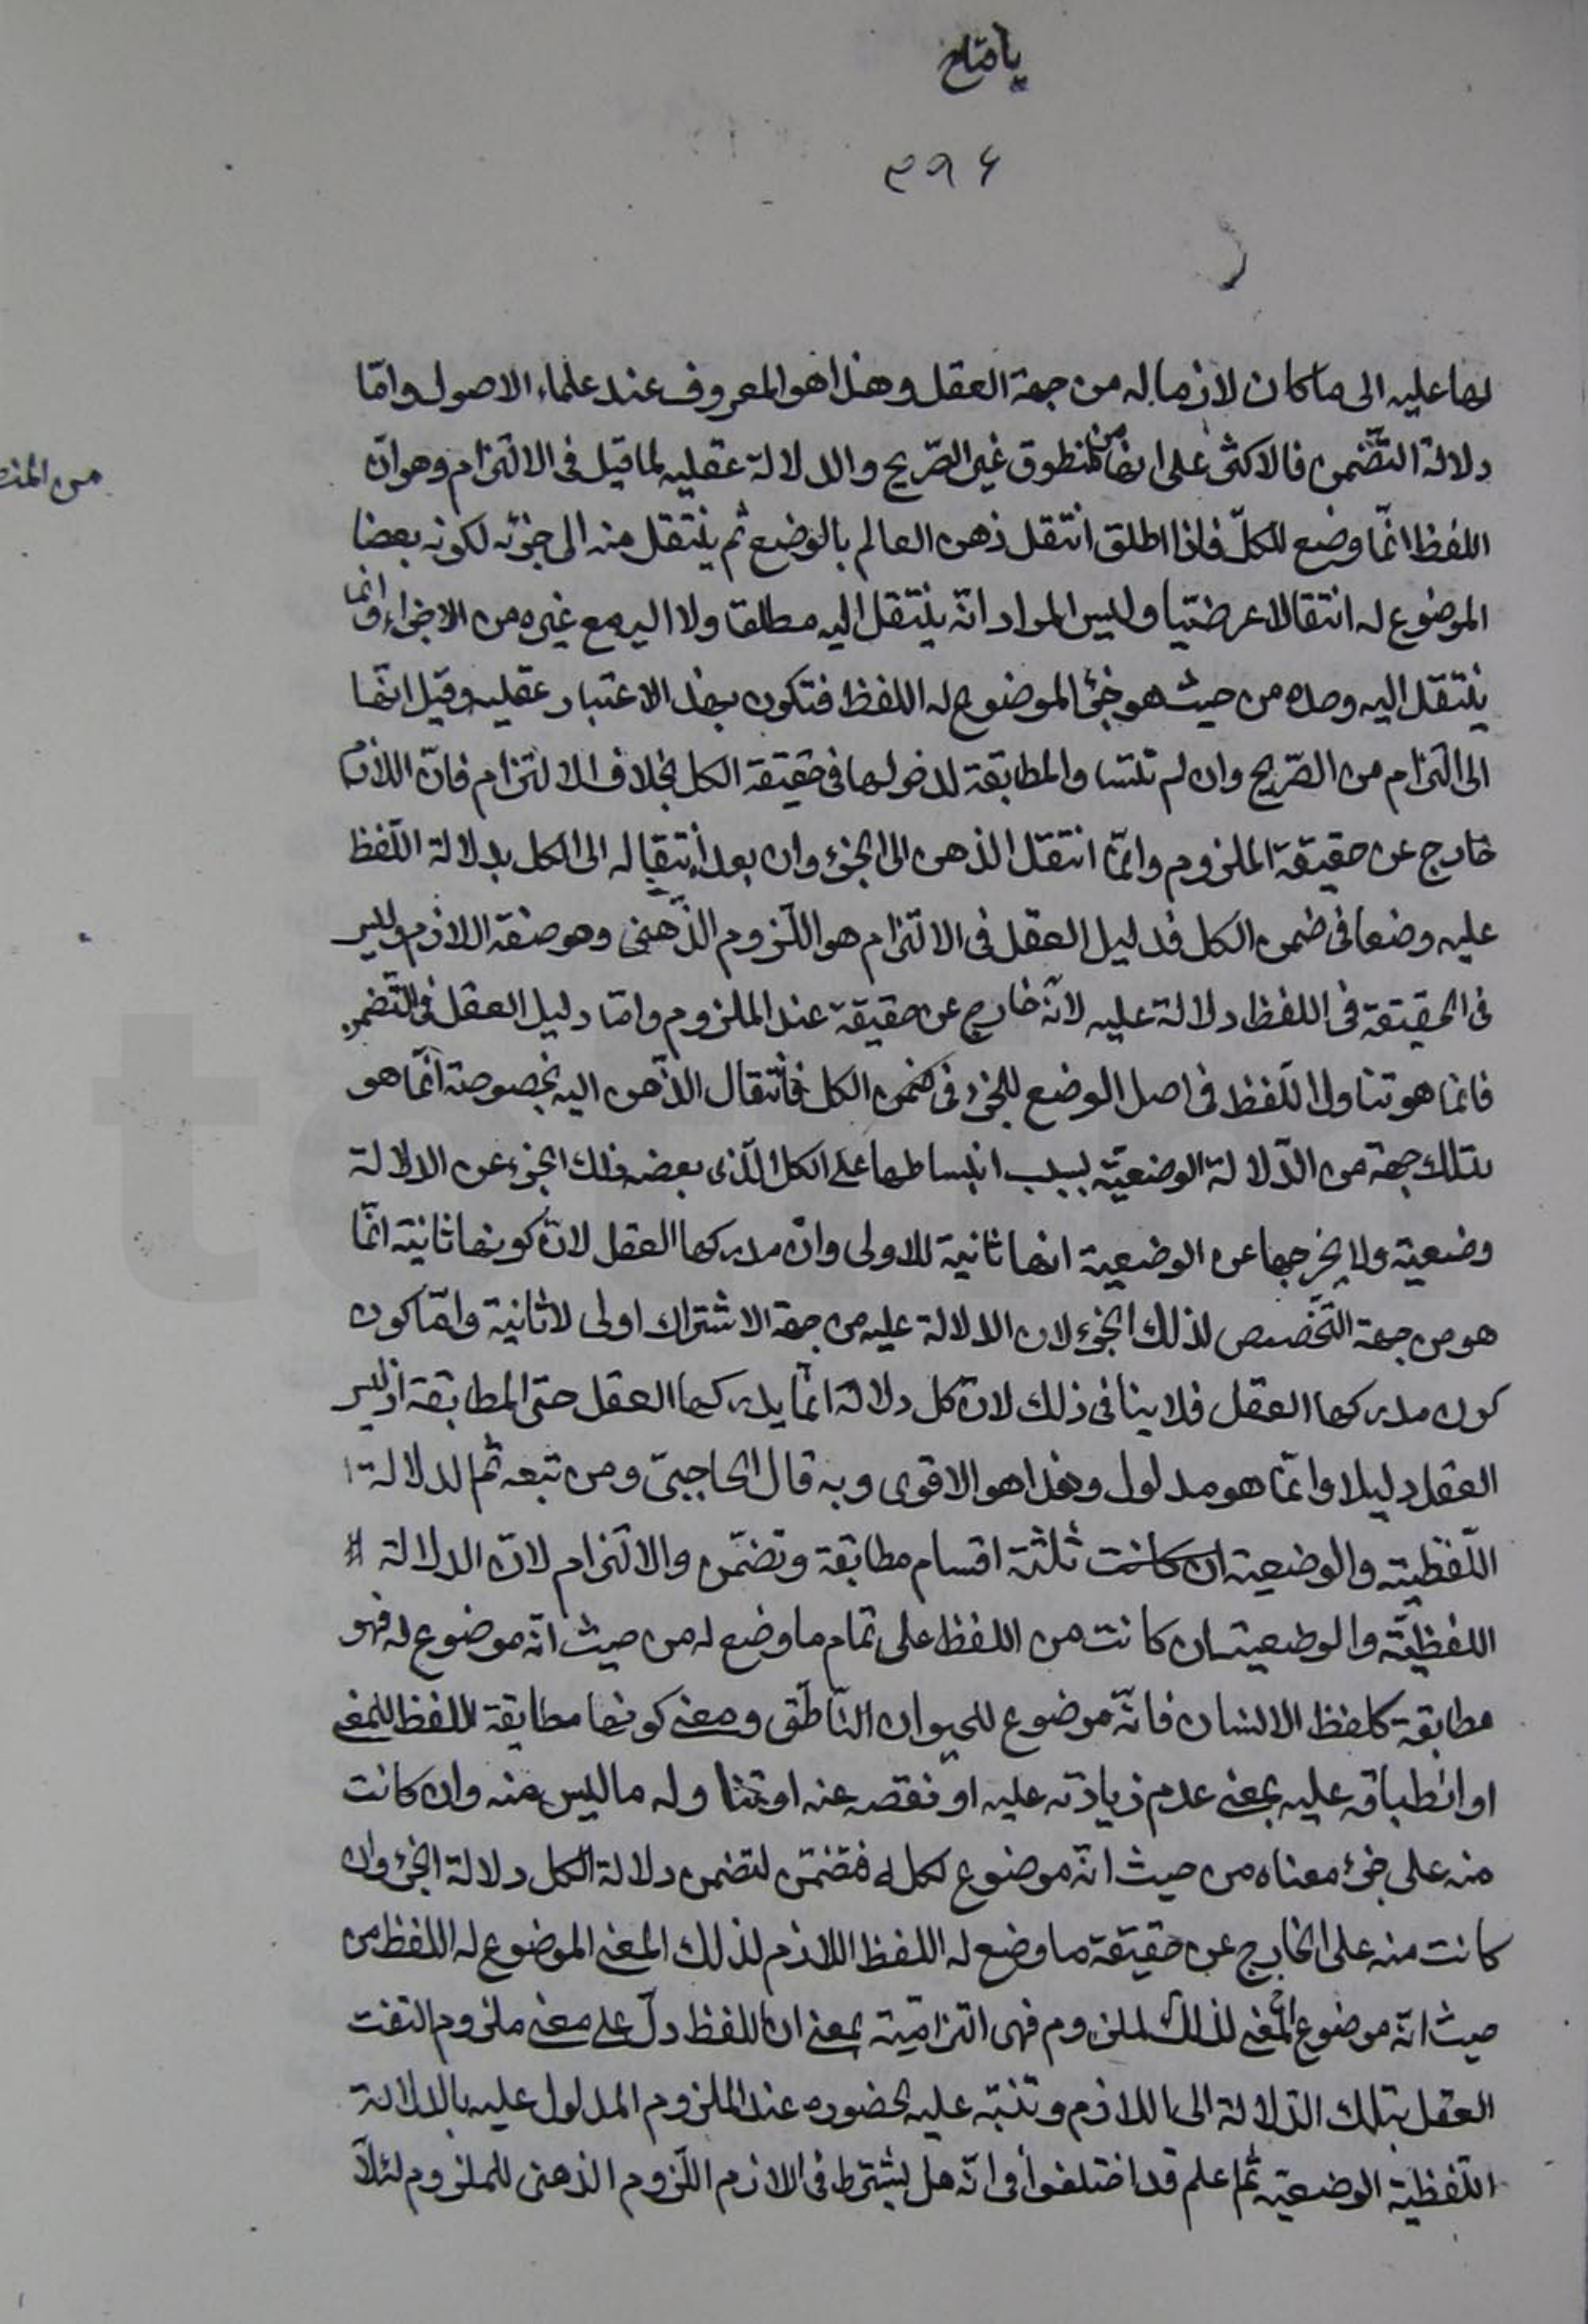 يا فتاح
٣٩٤
لها عليه الى ما كان لازما له من جهة العقل وهذا هو المعروف عند علماء الاصول وامّا
دلالة التضّمن فالاكثر على انها من المنطوق غير الصّريح والدلالة عقليه لما قيل فى الالتزام وهو انّ
من المنط
اللفظ انّما وضع للكلّ فاذا اطلق انتقل ذهن العالم بالوضع ثم ينتقل منه الى جزئه لكونه بعضا
الموضوع له انتقالا عرضيّا وليس المراد انّه ينتقل اليه مطلقا ولا اليه مع غيره من الاجزاء وانّما
ينتقل اليه وحده من حيث هو جزئ الموضوع له اللفظ فتكون بهذا الاعتبار عقليه وقيل انّها
الى التزام من الصّريح وان لم تلتساو المطابقة لدخولها فى حقيقة الكل بخلاف الالتزام فانّ اللازم
خارج عن حقيقة الملزوم وانّما انتقل الذهن الى الجزء وان بعد انتقاله الى الكل بدلالة اللّفظ
عليه وضعا فى ضمن الكل فدليل العقل فى الالتزام هو اللّزوم الذّهنى وهو صفة اللازم وليس
فى الحقيقة فى اللفظ دلالة عليه لانّه خارج عن حقيقة عند الملزوم وامّا دليل العقل فى التّضمن
فانما هو تناول اللّفظ فى اصل الوضع للجزء فى ضمن الكل فانتقال الذّهن اليه بخصوصة انّما هو
بتلك جهة من الدّلالة الوضعيّة بسبب انبساطها على الكل الّذى بعضه ذلك الجزء عن الدلالة
وضعية ولا يخرجها عن الوضعية انها ثانية للاولى وانّ مدركها العقل لانّ كونها ثانية انّما
هو من جهة التخّصص لذلك الجزء لان الدلالة عليه من جهة الاشتراك اولى لاثانية وامّا كون
كون مدركها العقل فلا ينافى ذلك لانّ كل دلالة انّما يدركها العقل حتى المطابقة اذ ليس
العقل دليلا وانّما هو مدلول وهذا هو الاقوى وبه قال الحاجبىّ ومن تبعه ثم الدلالة
اللّفظيّة والوضعية ان كانت ثلثة اقسام مطابقة وتضمّن والالتزام لانّ الدلالة
اللفظيّة والوطعية ان كانت من اللفظ على تمام ما وضع له من حيث انّه موضوع له فهو
مطابقة كلفظ الانسان فانّه موضوع للحيوان النّاطق ومعنى كونها مطابقة اللفظ للمعنى
او انطباقه عليه بمعنى عدم زيادته عليه او نقصه عنه او تناوله ما ليس منه وان كانت
منه على جزئ معناه من حيث انّه موضوع لكله فتضمّن لتضمن دلالة الكل دلالة الجزء وان
كانت منه على الخارج عن حقيقة ما وضع له اللفظ اللازم لذلك المعنى الموضوع له اللفظ من
حيث انّه موضوع المعنى لذلك الملزوم فهى التزاميّة بمعنى ان اللفظ دلّ على معنى ملزوم التفت
العقل بتلك الدّلالة الى اللازم وتنبّه عليه لحضوره عند الملزوم المدلول عليه بالدلالة
اللّفظيّة الوضعية ثم اعلم قد اختلفوا فى انّه هل يشترط فى الازم اللّزوم الذهنى للملزوم لئلّا